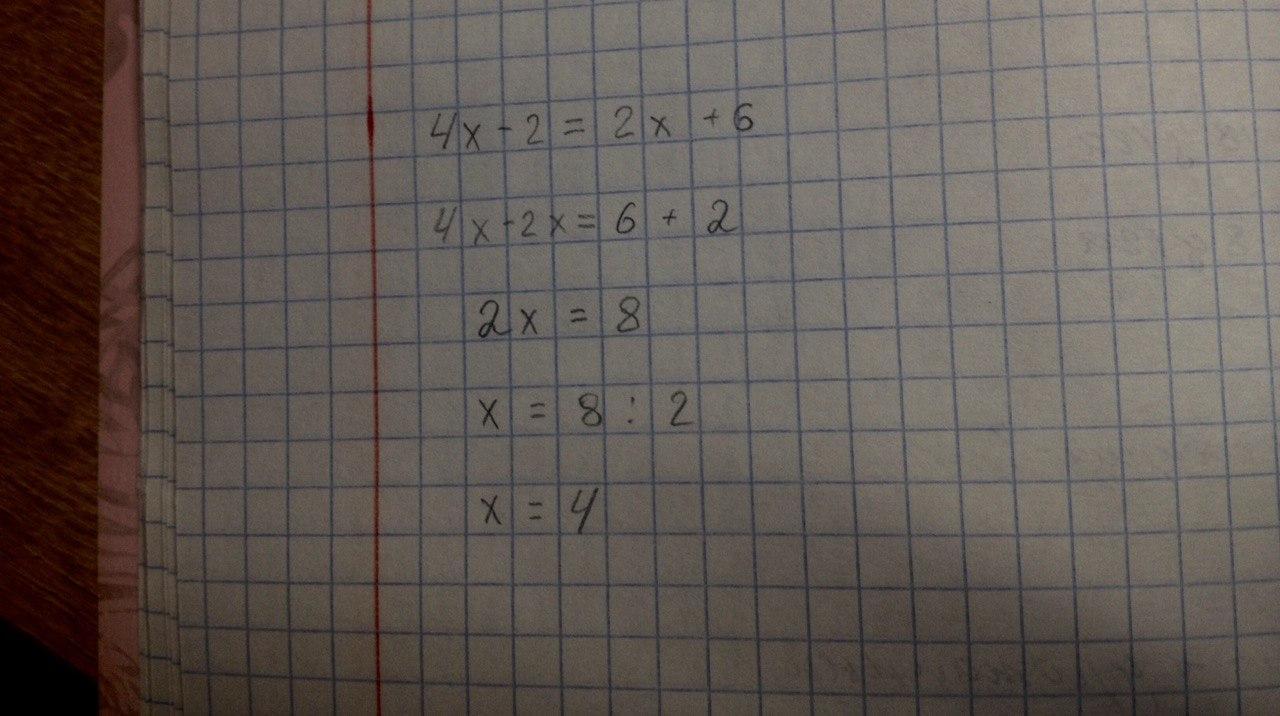 4x - 2 = 2x + 6
4x - 2x = 6 + 2
2x = 8
x = 8 : 2
x = 4